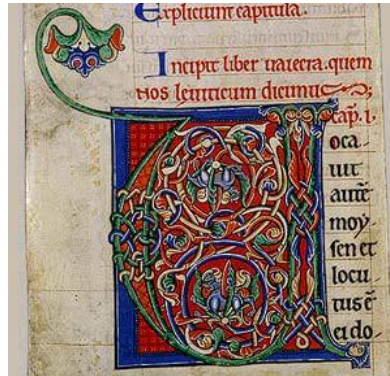 Expliciunt capitula.
Incipit liber uaiecra. quem
nos leuiticum dicimus;
cap̄. i.
V
oca
uit
autē
moy
sen et
locu
tus ē
ei do